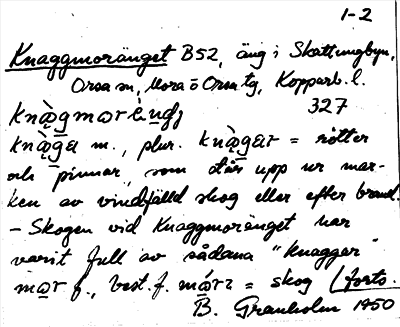 1-2
Knaggmoränget B52, äng i Skattungbyn,
Orsa sn, Mora o Orsa tg, Kopparb. l.
327
knàgmorèŋgı
knàga m., plur. knàgar = rötter
och pinnar, som stås upp ur mar-
ken av vindfälld skog eller efter brand.
– Skogen vid Knaggmoränget har
varit full av sådana "knaggar"
mor f., best. f. mórɪ = skog (forts.
B. Granholm 1950